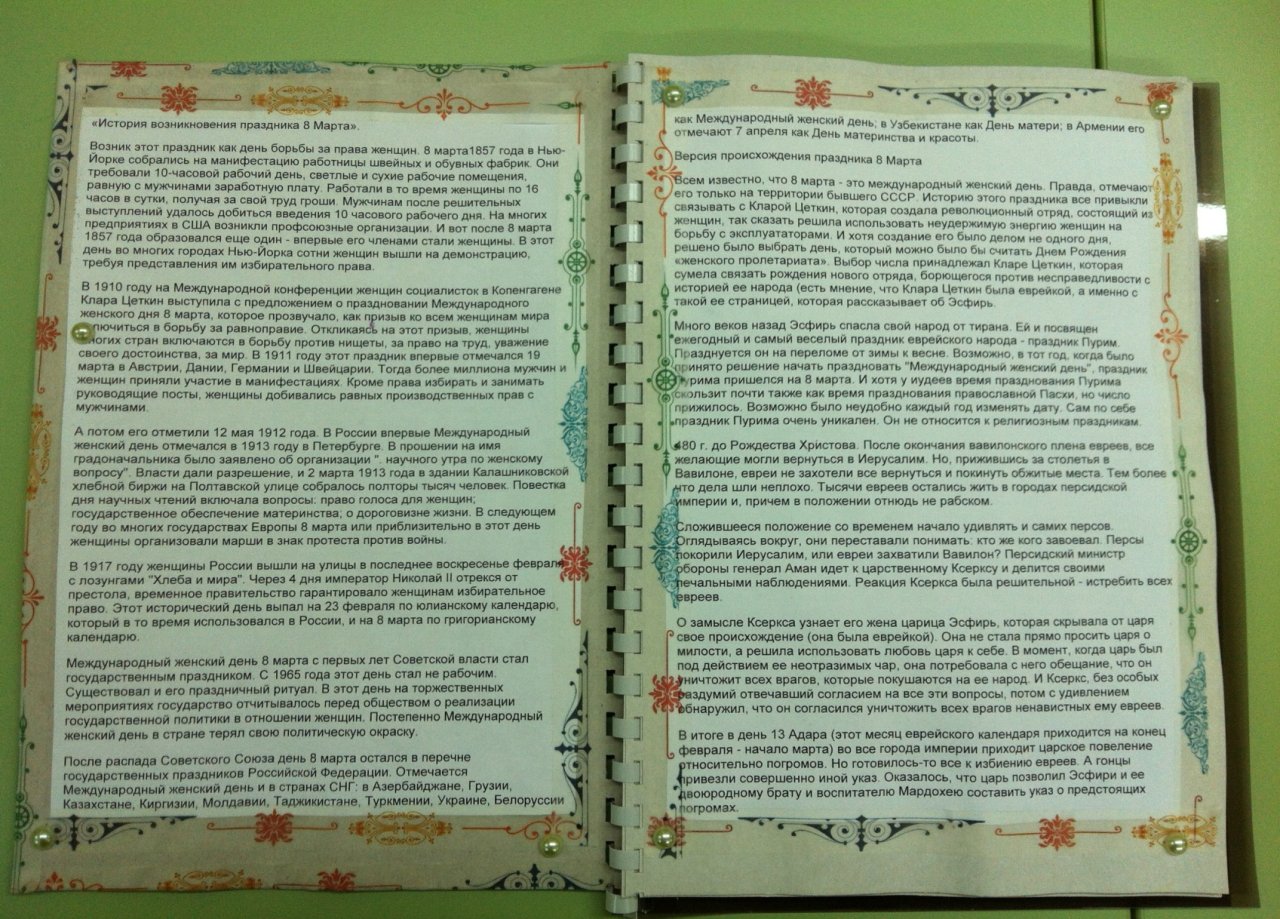 «История возникновения праздника 8 Марта».
Возник этот праздник как день борьбы за права женщин. 8 марта1857 года в Нью-
Йорке собрались на манифестацию работницы швейных и обувных фабрик. Они
требовали 10-часовой рабочий день, светлые и сухие рабочие помещения,
равную с мужчинами заработную плату. Работали в то время женщины по 16
часов в сутки, получая за свой труд гроши. Мужчинам после решительных
выступлений удалось добиться введения 10 часового рабочего дня. На многих
предприятиях в США возникли профсоюзные организации. И вот после 8 марта
1857 года образовался еще один - впервые его членами стали женщины. В этот
день во многих городах Нью-Йорка сотни женщин вышли на демонстрацию,
требуя представления им избирательного права.
В 1910 году на Международной конференции женщин социалисток в Копенгагене
Клара Цеткин выступила с предложением о праздновании Международного
женского дня 8 марта, которое прозвучало, как призыв ко всем женщинам мира
включиться в борьбу за равноправие. Откликаясь на этот призыв, женщины
многих стран включаются в борьбу против нищеты, за право на труд, уважение
своего достоинства, за мир. В 1911 году этот праздник впервые отмечался 19
марта в Австрии, Дании, Германии и Швейцарии. Тогда более миллиона мужчин и
женщин приняли участие в манифестациях. Кроме права избирать и занимать
руководящие посты, женщины добивались равных производственных прав с
мужчинами.
А потом его отметили 12 мая 1912 года. В России впервые Международный
женский день отмечался в 1913 году в Петербурге. В прошении на имя
градоначальника было заявлено об организации ". научного утра по женскому
вопросу". Власти дали разрешение, и 2 марта 1913 года в здании Калашниковской
хлебной биржи на Полтавской улице собралось полторы тысяч человек. Повестка
дня научных чтений включала вопросы: право голоса для женщин;
государственное обеспечение материнства; о дороговизне жизни. В следующем
году во многих государствах Европы 8 марта или приблизительно в этот день
женщины организовали марши в знак протеста против войны.
В 1917 году женщины России вышли на улицы в последнее воскресенье февраля
с лозунгами "Хлеба и мира". Через 4 дня император Николай II отрекся от
престола, временное правительство гарантировало женщинам избирательное
право. Этот исторический день выпал на 23 февраля по юлианскому календарю,
который в то время использовался в России, и на 8 марта по григорианскому
календарю.
Международный женский день 8 марта с первых лет Советской власти стал
государственным праздником. С 1965 года этот день стал не рабочим.
Существовал и его праздничный ритуал. В этот день на торжественных
мероприятиях государство отчитывалось перед обществом о реализации
государственной политики в отношении женщин. Постепенно Международный
женский день в стране терял свою политическую окраску.
После распада Советского Союза день 8 марта остался в перечне
государственных праздников Российской Федерации. Отмечается
Международный женский день и в странах СНГ: в Азербайджане, Грузии,
Казахстане, Киргизии, Молдавии, Таджикистане, Туркмении, Украине, Белоруссии
как Международный женский день; в Узбекистане как День матери; в Армении его
отмечают 7 апреля как День материнства и красоты.
Версия происхождения праздника 8 Марта
Всем известно, что 8 марта - это международный женский день. Правда, отмечают
его только на территории бывшего СССР. Историю этого праздника все привыкли
связывать с Кларой Цеткин, которая создала революционный отряд, состоящий из
женщин, так сказать решила использовать неудержимую энергию женщин на
борьбу с эксплуататорами. И хотя создание его было делом не одного дня,
решено было выбрать день, который можно было бы считать Днем Рождения
«женского пролетариата». Выбор числа принадлежал Кларе Цеткин, которая
сумела связать рождения нового отряда, борющегося против несправедливости с
историей ее народа (есть мнение, что Клара Цеткин была еврейкой, а именно с
такой ее страницей, которая рассказывает об Эсфирь.
Много веков назад Эсфирь спасла свой народ от тирана. Ей и посвящен
ежегодный и самый веселый праздник еврейского народа - праздник Пурим.
Празднуется он на переломе от зимы к весне. Возможно, в тот год, когда было
принято решение начать праздновать "Международный женский день", праздник
Пурима пришелся на 8 марта. И хотя у иудеев время празднования Пурима
скользит почти также как время празднования православной Пасхи, но число
прижилось. Возможно было неудобно каждый год изменять дату. Сам по себе
праздник Пурима очень уникален. Он не относится к религиозным праздникам.
480 г. до Рождества Христова. После окончания вавилонского плена евреев, все
желающие могли вернуться в Иерусалим. Но, прижившись за столетья в
Вавилоне, евреи не захотели все вернуться и покинуть обжитые места. Тем более
что дела шли неплохо. Тысячи евреев остались жить в городах персидской
империи и, причем в положении отнюдь не рабском.
Сложившееся положение со временем начало удивлять и самих персов.
Оглядываясь вокруг, они переставали понимать: кто же кого завоевал. Персы
покорили Иерусалим, или евреи захватили Вавилон? Персидский министр
обороны генерал Аман идет к царственному Ксерксу и делится своими
печальными наблюдениями. Реакция Ксеркса была решительной - истребить всех
евреев.
О замысле Ксеркса узнает его жена царица Эсфирь, которая скрывала от царя
свое происхождение (она была еврейкой). Она не стала прямо просить царя о
милости, а решила использовать любовь царя к себе. В момент, когда царь был
под действием ее неотразимых чар, она потребовала с него обещание, что он
уничтожит всех врагов, которые покушаются на ее народ. И Ксеркс, без особых
раздумий отвечавший согласием на все эти вопросы, потом с удивлением
обнаружил, что он согласился уничтожить всех врагов ненавистных ему евреев.
В итоге в день 13 Адара (этот месяц еврейского календаря приходится на конец
февраля - начало марта) во все города империи приходит царское повеление
относительно погромов. Но готовилось-то все к избиению евреев. А гонцы
привезли совершенно иной указ. Оказалось, что царь позволил Эсфири и ее
двоюродному брату и воспитателю Мардохею составить указ о предстоящих
погромах.